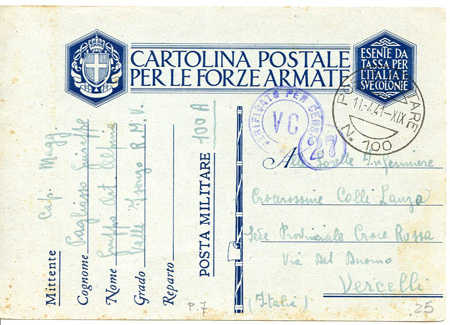 CARTOLINA POSTALE
PER LE FORZE ARMATE
ESENTE DA
TASSA PER
L'ITALIA E
SUE COLONIE
VERIFICATO PER CENSURA
VC
27
POSTA MILITARE
N. 100
11.4.41-XIX
Mittente
Cap. Magg
Cognome
Nome
Giuseppe
Grado
Gruppo Art. Alpina
Reparto
Valle Isonzo R.M.V.
POSTA MILITARE 100 A
Infermiere
Crocerossine Colli Lanza
Sede Provinciale Croce Rossa
Via del Duomo
Vercelli
(Italia)
P.7
25